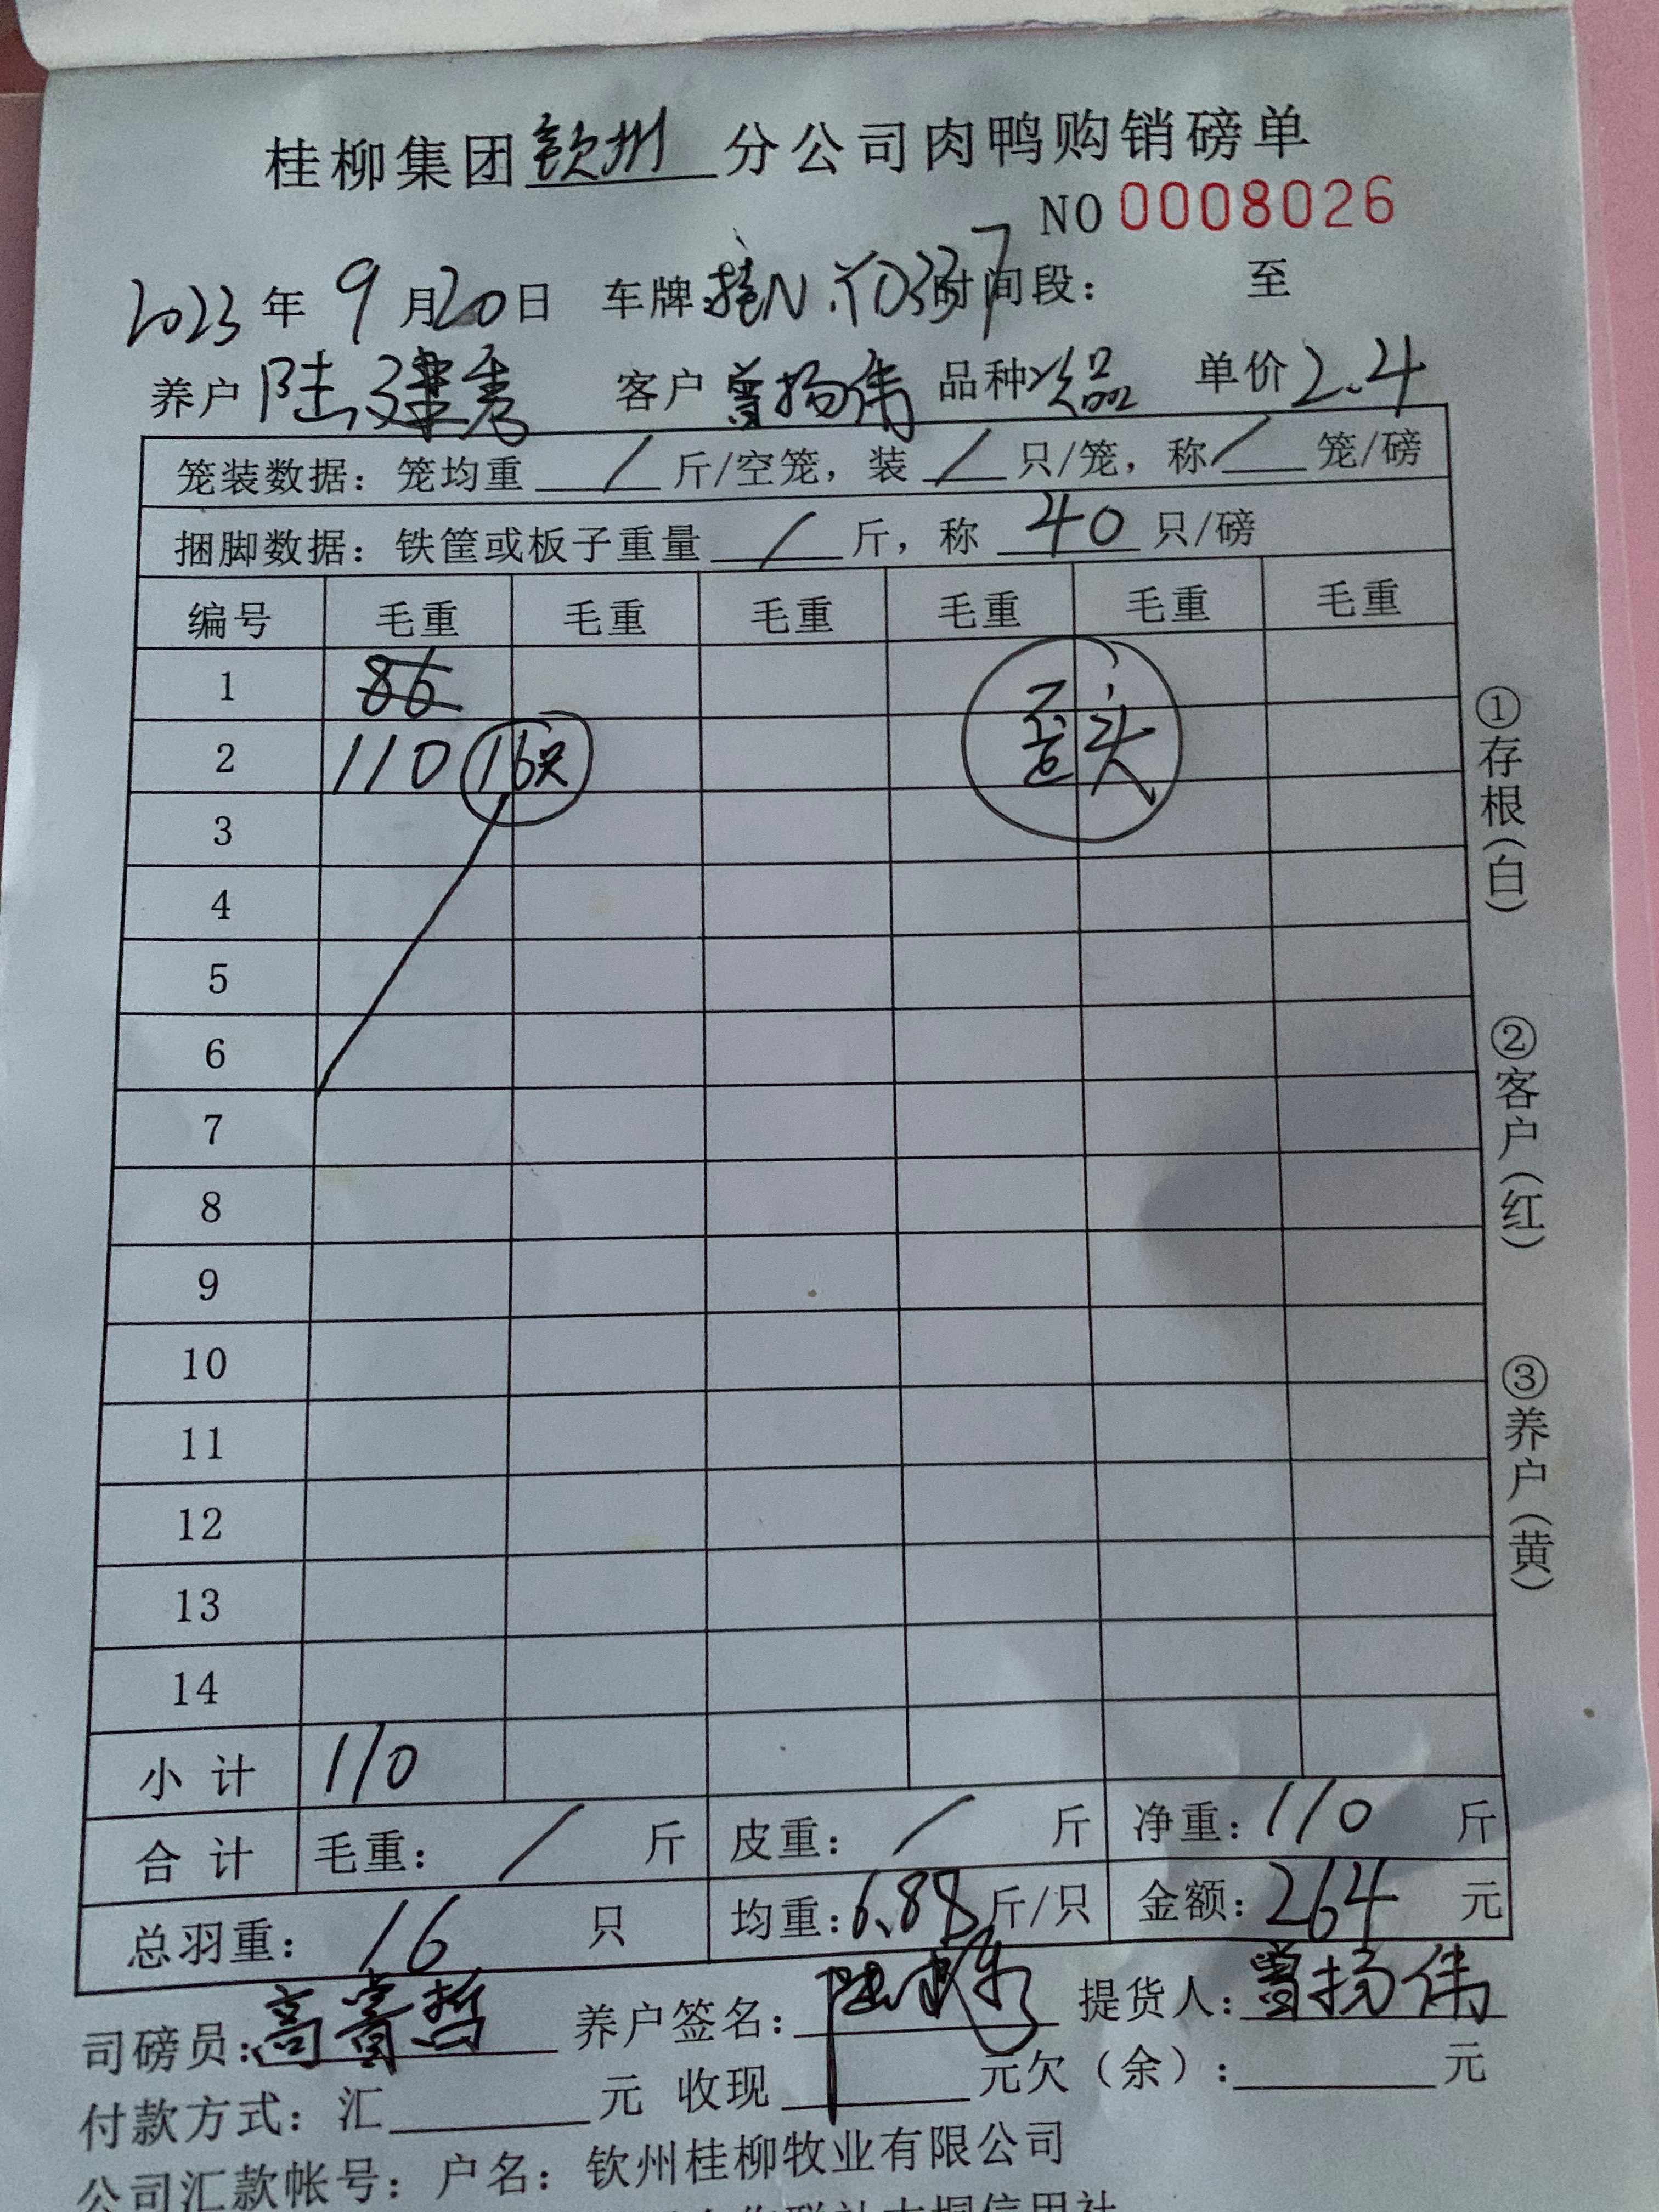 桂柳集团钦州分公司肉鸭购销磅单
NO 0008026
2023年9月20日 车牌:桂N.Y0337 时间段: 至
养户 陆建秀 客户 曾扬伟 品种 次品 单价 2.4
笼装数据:笼均重 / 斤/空笼,装 / 只/笼,称 / 笼/磅
捆脚数据:铁筐或板子重量 / 斤,称 40 只/磅
编号 毛重 毛重 毛重 毛重 毛重 毛重
1 86
2 110 16只 头
3
4
5
6
7
8
9
10
11
12
13
14
小计 110
合计 毛重: / 斤 皮重: / 斤 净重:110 斤
总羽重: 16 只 均重:6.88斤/只 金额:264 元
司磅员:高青哲 养户签名: 提货人:曾扬伟
付款方式:汇 元 收现 元欠(余): 元
公司汇款帐号:户名:钦州桂柳牧业有限公司
①存根(白)
②客户(红)
③养户(黄)